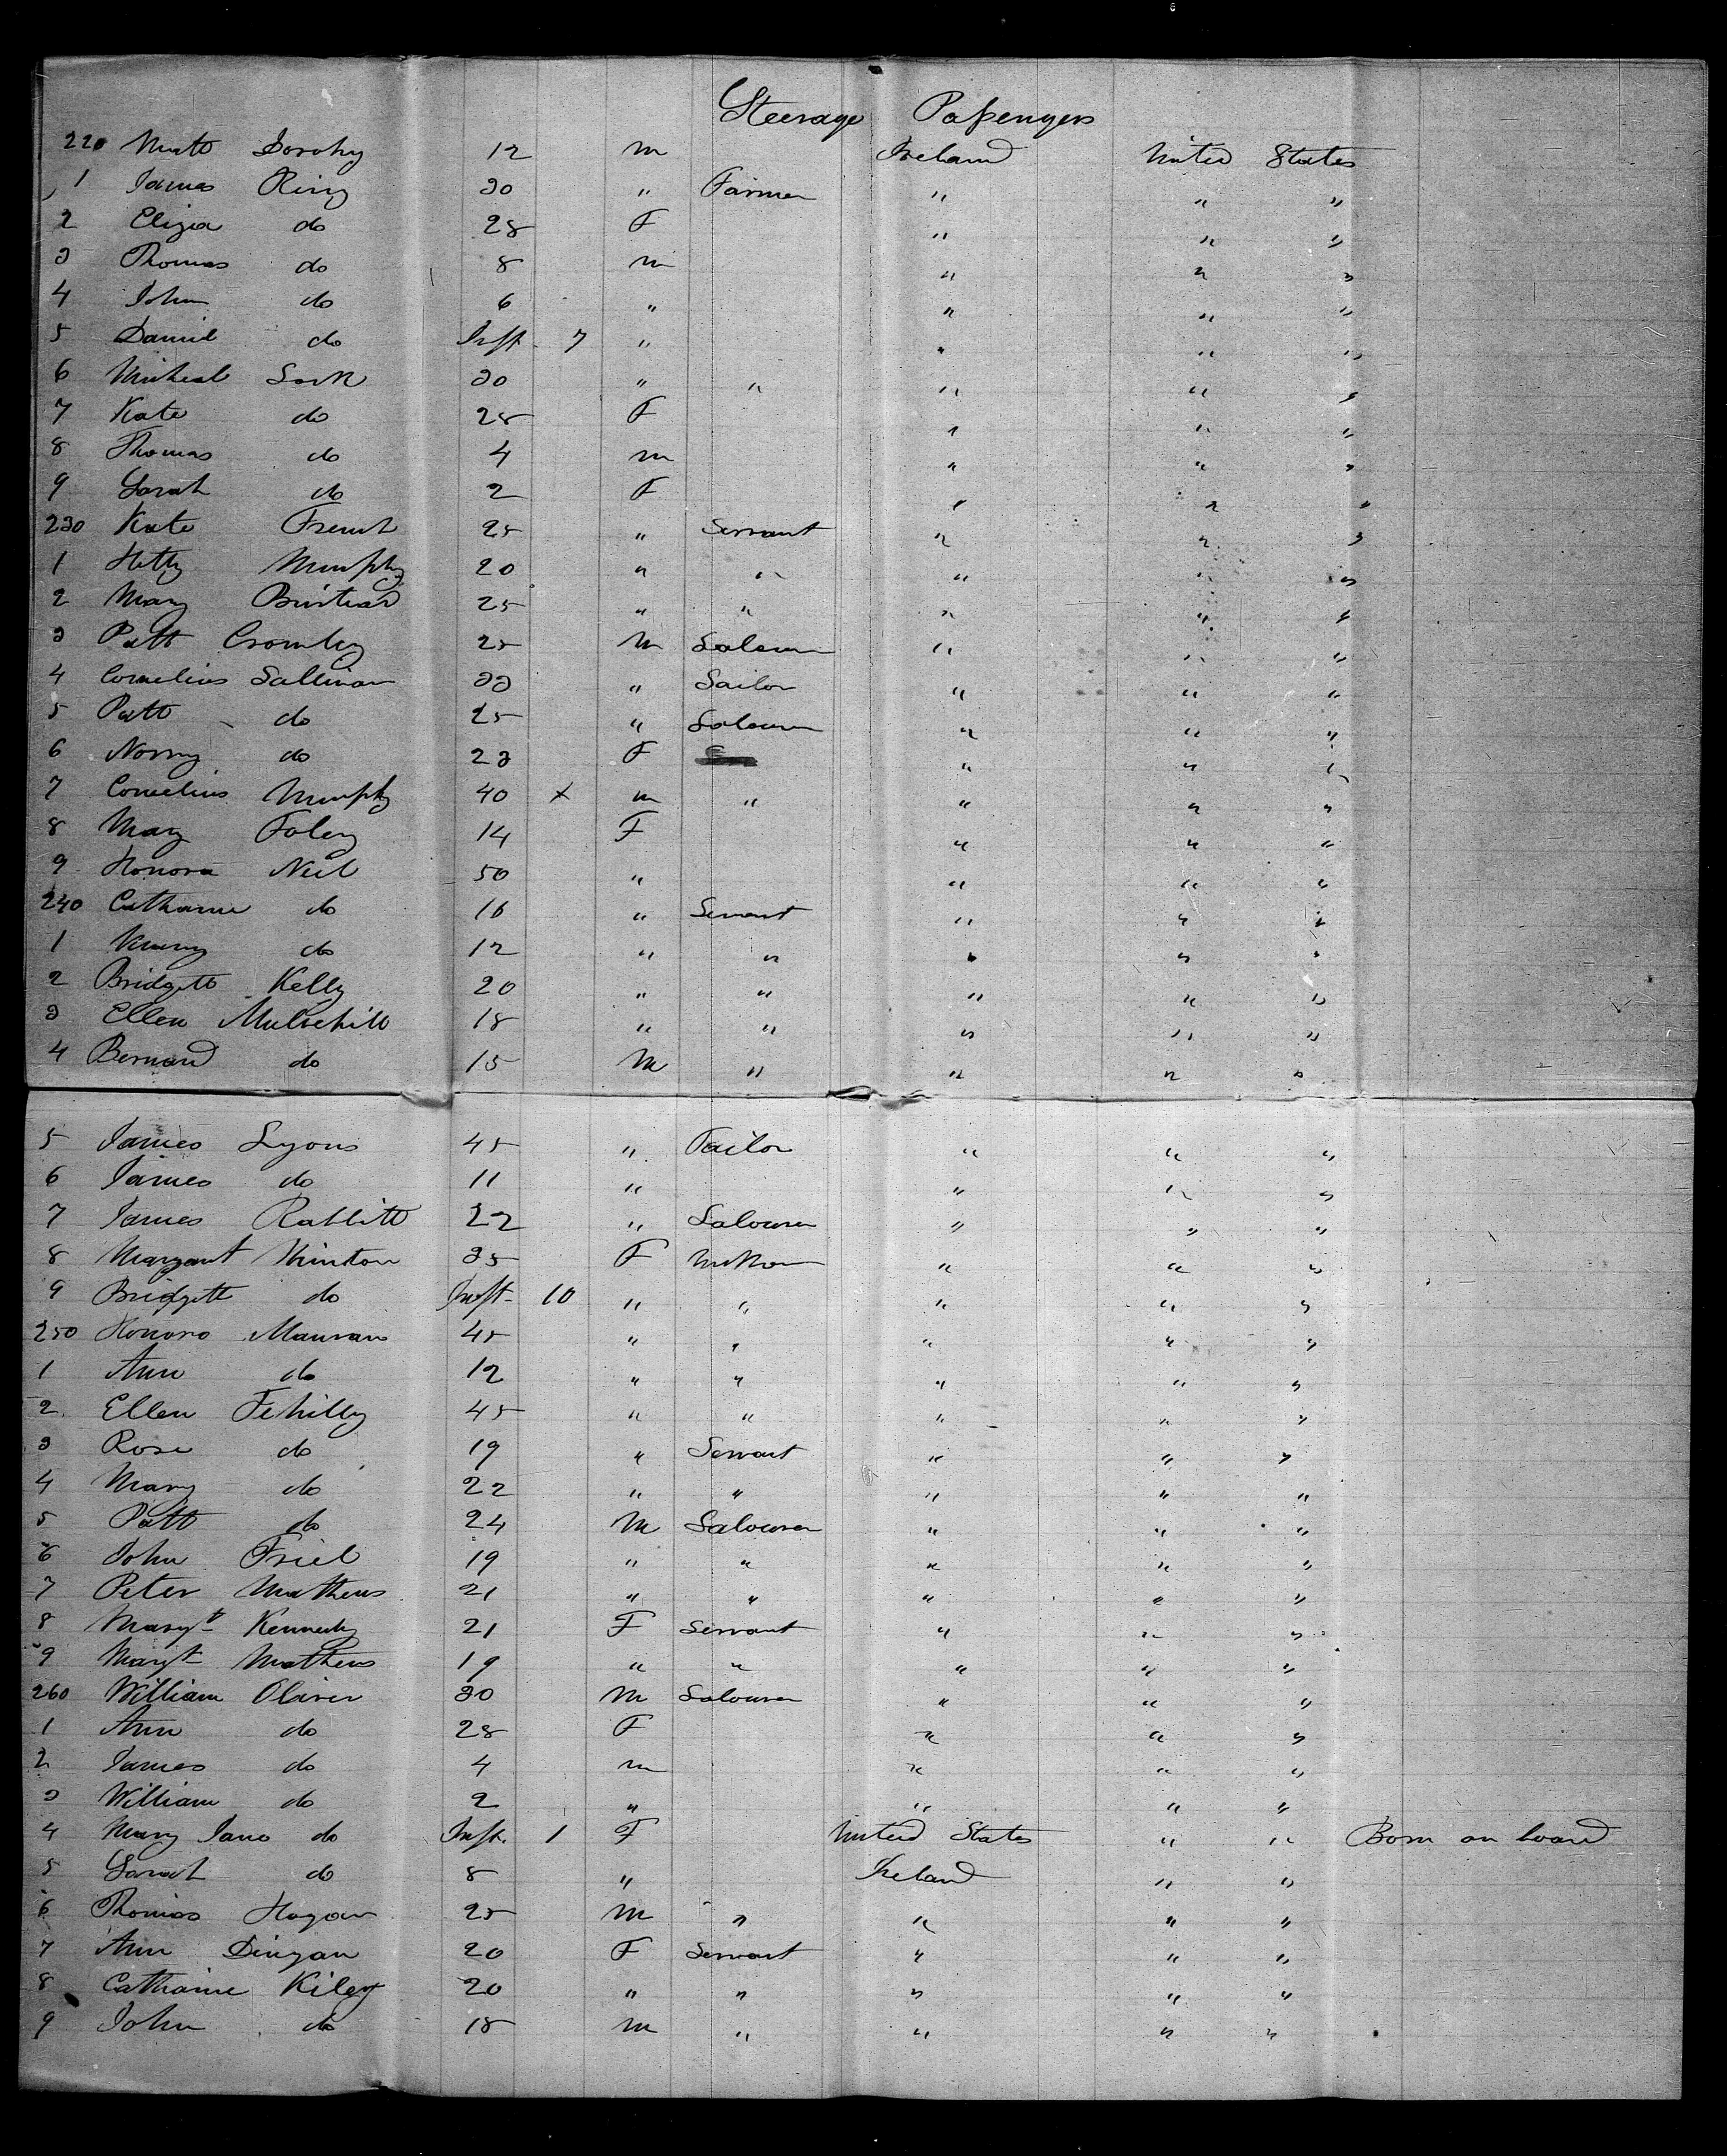 Steerage Passengers
220 Matt Dorohy 12 m Ireland United States
1 James Ring 30 " Farmer " " "
2 Eliza do 28 F " " "
3 Thomas do 8 m " " "
4 John do 6 " " " "
5 Daniel do Inft. 7 " " " "
6 Micheal 30 " " " " "
7 Kate do 28 F " " "
8 Thomas do 4 m " " "
9 Sarah do 2 F " " "
230 Kate French 25 " Servant " " "
1 Hetty Murphy 20 " " " " "
2 Mary 25 " " " " "
3 Patt Cromley 25 M " " "
4 Cornelius Sullivan 33 " Sailor " " "
5 Patt do 25 " Labourer " " "
6 Norry do 23 F " " "
7 Cornelius Murphy 40 x m " " " "
8 Mary Foley 14 F " " "
9 Honora Neil 50 " " " "
240 Catharine do 16 " Servant " " "
1 do 12 " " " " "
2 Bridgett Kelly 20 " " " " "
3 Ellen Mulvehill 18 " " " " "
4 Bernard do 15 M " " " "
5 James Lyons 45 " Tailor " " "
6 James do 11 " " " "
7 James Rabbitt 22 " Labourer " " "
8 Margaret 35 F " " "
9 Bridgett do Inft. 10 " " " " "
250 Honora 45 " " " " "
1 Ann do 12 " " " " "
2 Ellen Fehilly 45 " " " " "
3 Rose do 19 " Servant " " "
4 Mary do 22 " " " " "
5 Patt do 24 M Labourer " " "
6 John Friel 19 " " " " "
7 Peter Mathews 21 " " " " "
8 Margt Kennedy 21 F Servant " " "
9 Margt Mathews 19 " " " " "
260 William Oliver 30 M Labourer " " "
1 Ann do 28 F " " "
2 James do 4 m " " "
3 William do 2 " " " "
4 Mary Jane do Inft. 1 F United States " " Born on board
5 Sarah do 8 " Ireland " "
6 Thomas Hogan 25 M " " " "
7 Ann Dingan 20 F Servant " " "
8 Catharine Kiley 20 " " " " "
9 John do 18 M " " " "